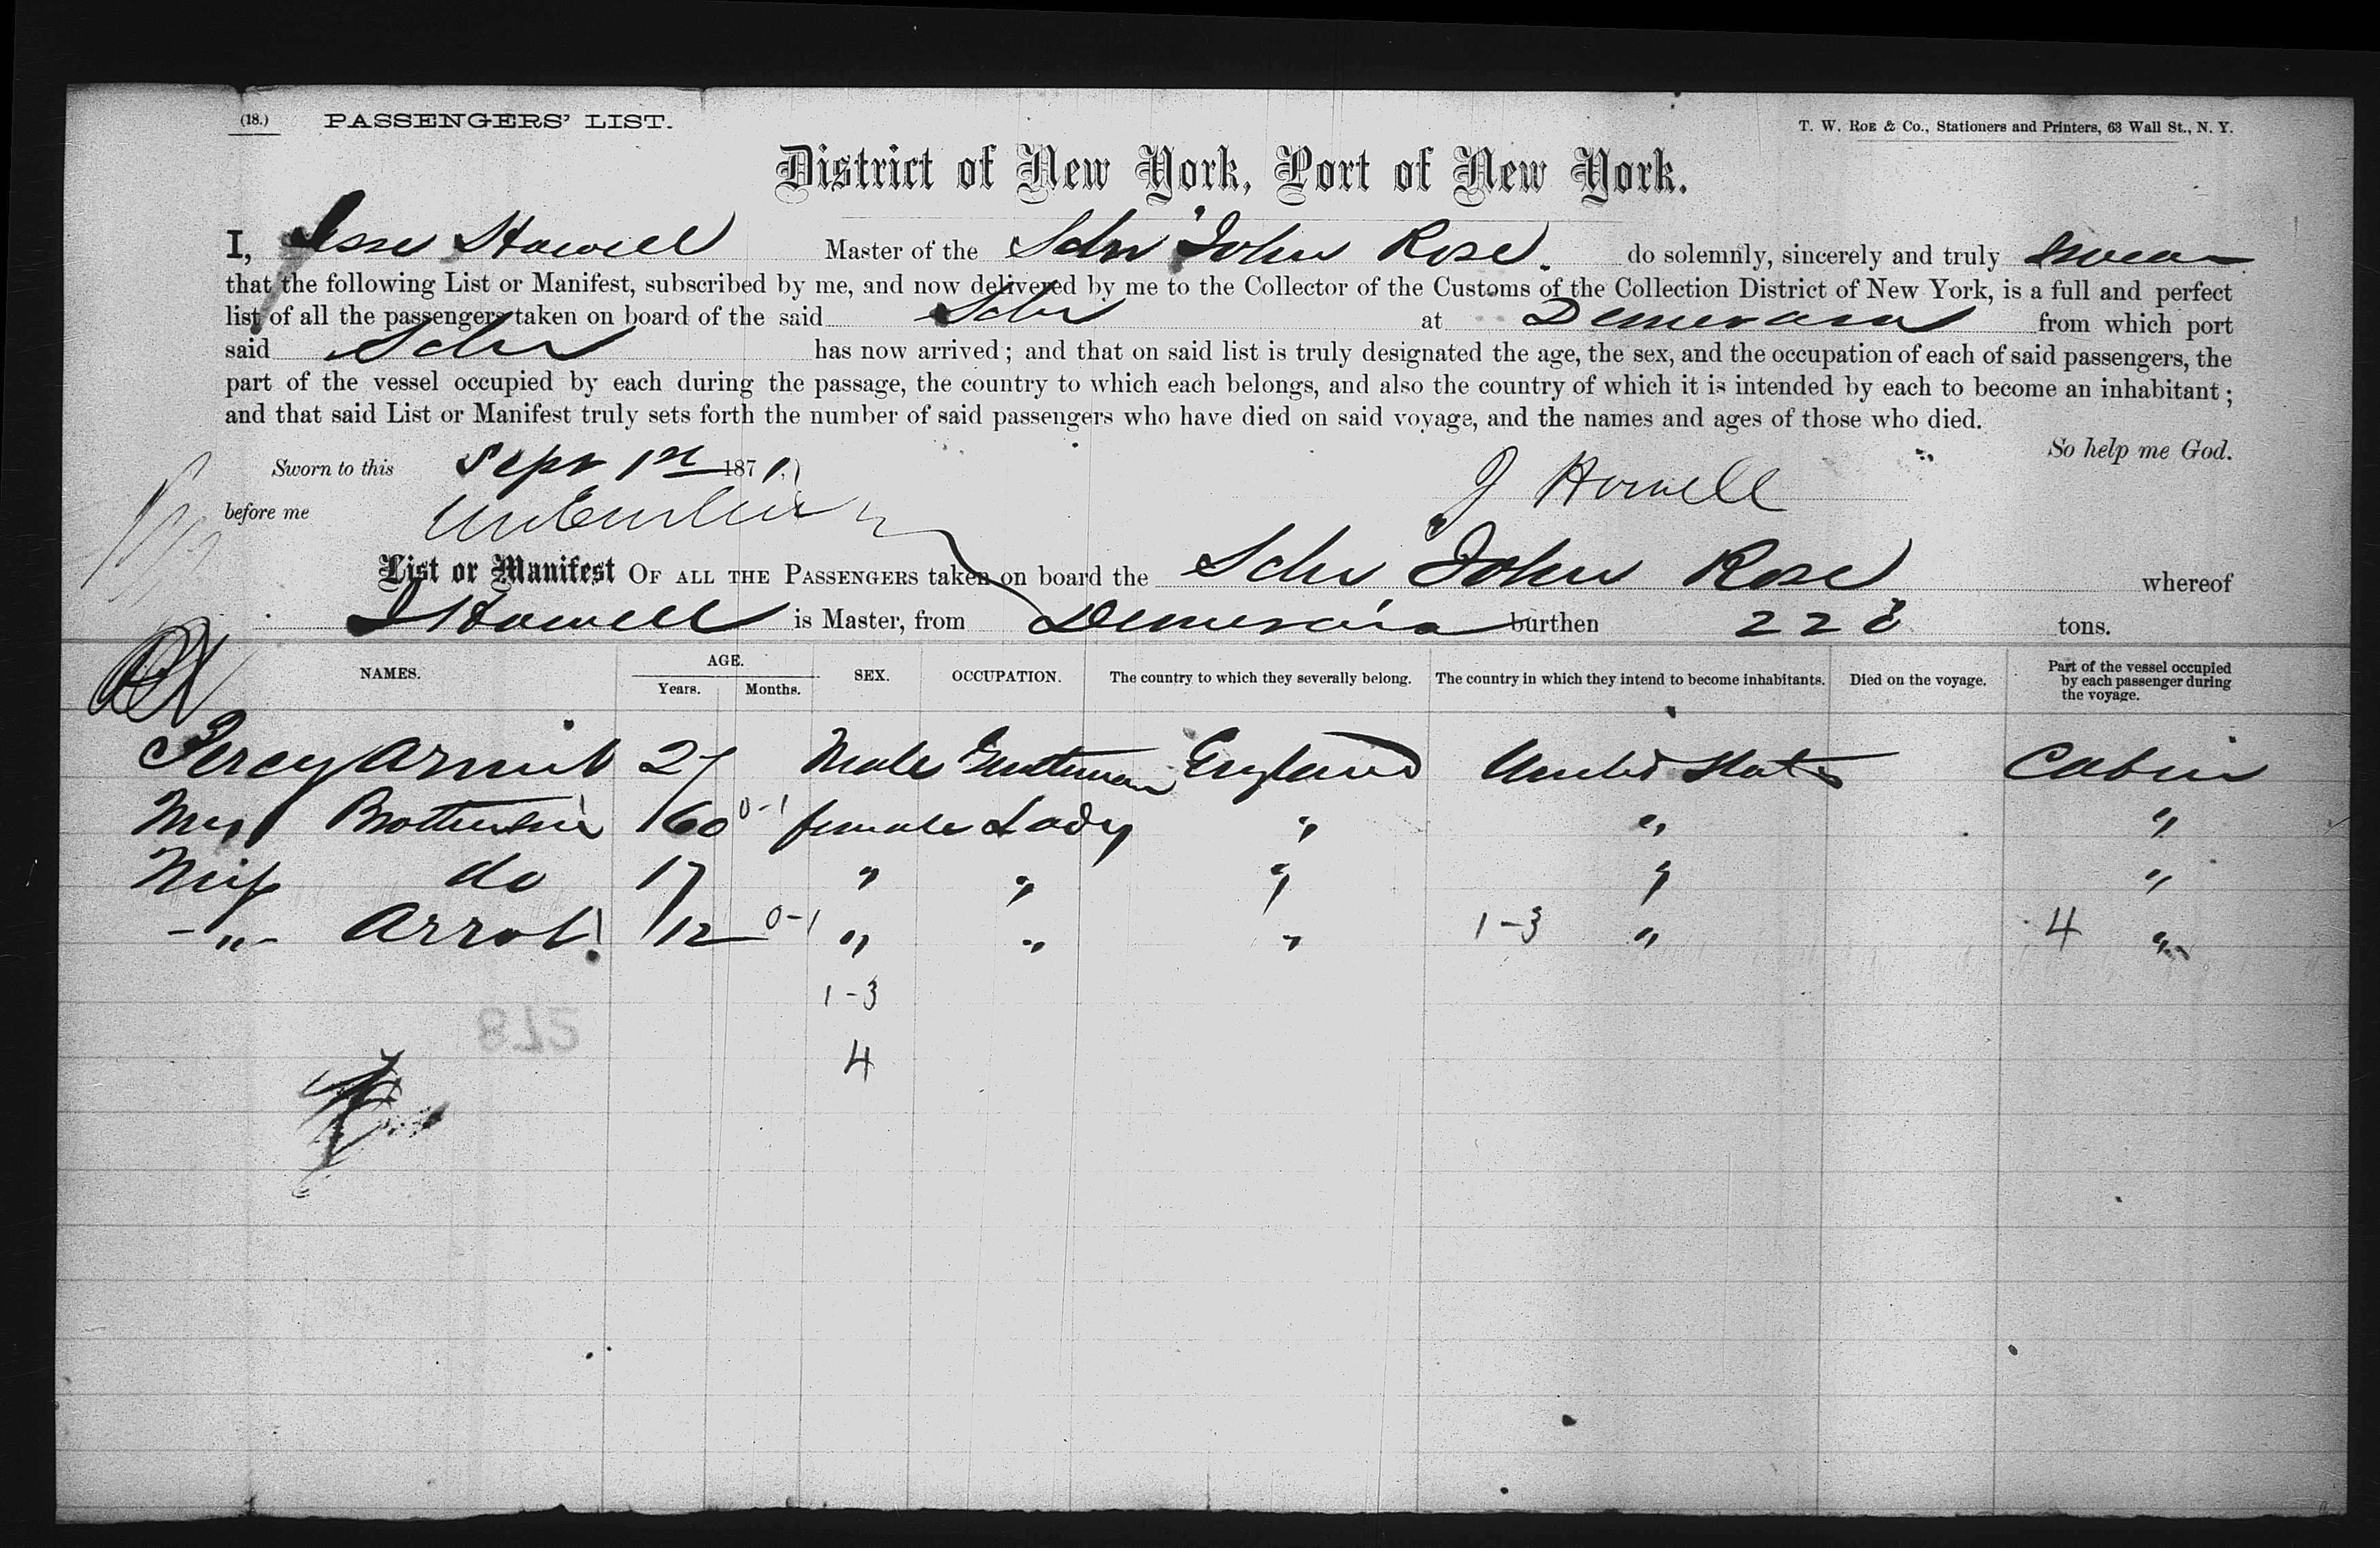 (18.) PASSENGERS' LIST.
T. W. Roe & Co., Stationers and Printers, 63 Wall St., N. Y.
District of New York, Port of New York.
I, Jesse Howell Master of the Schr "John Rose. do solemnly, sincerely and truly swear
that the following List or Manifest, subscribed by me, and now delivered by me to the Collector of the Customs of the Collection District of New York, is a full and perfect
list of all the passengers taken on board of the said Schr at Demerara from which port
said Schr has now arrived; and that on said list is truly designated the age, the sex, and the occupation of each of said passengers, the
part of the vessel occupied by each during the passage, the country to which each belongs, and also the country of which it is intended by each to become an inhabitant;
and that said List or Manifest truly sets forth the number of said passengers who have died on said voyage, and the names and ages of those who died.
So help me God.
Sworn to this Sept 1st 1871.
J Howell
before me
List or Manifest Of all the Passengers taken on board the Schr "John Rose" whereof
J Howell is Master, from Demerara burthen 228 tons.
NAMES. AGE. Years. Months. SEX. OCCUPATION. The country to which they severally belong. The country in which they intend to become inhabitants. Died on the voyage. Part of the vessel occupied by each passenger during the voyage.
Percy 27 Male Gentleman England United States Cabin
Mrs 60 0-1 female Lady " " "
Miss do 17 " " " " "
-"- 12 0-1 " " " 1-3 " 4 "
1-3
872
4